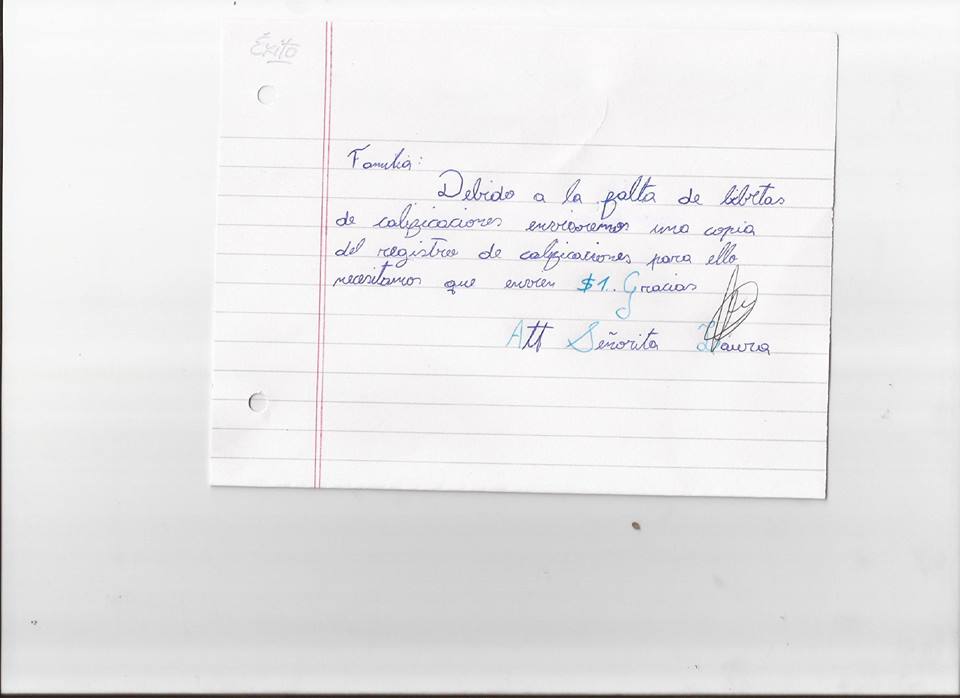 Éxito
Familia:
Debido a la falta de libretas
de calificaciones enviaremos una copia
del registro de calificaciones para ello
necesitamos que envien $1.. Gracias
Att Señorita Laura